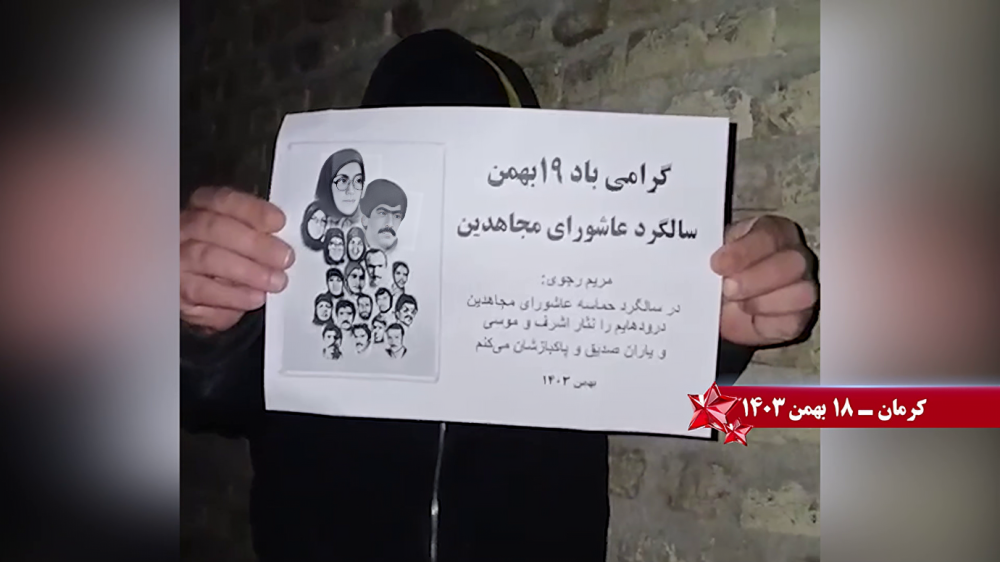 گرامی باد ۱۹بهمن
سالگرد عاشورای مجاهدین
مریم رجوی:
در سالگرد حماسه عاشورای مجاهدین
درودهایم را نثار اشرف و موسی
و یاران صدیق و پاکبازشان می‌کنم
بهمن ۱۴۰۳
کرمان ــ ۱۸ بهمن ۱۴۰۳